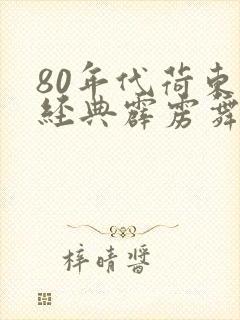 80年代荷東
經典霹雳舞
梓晴醬